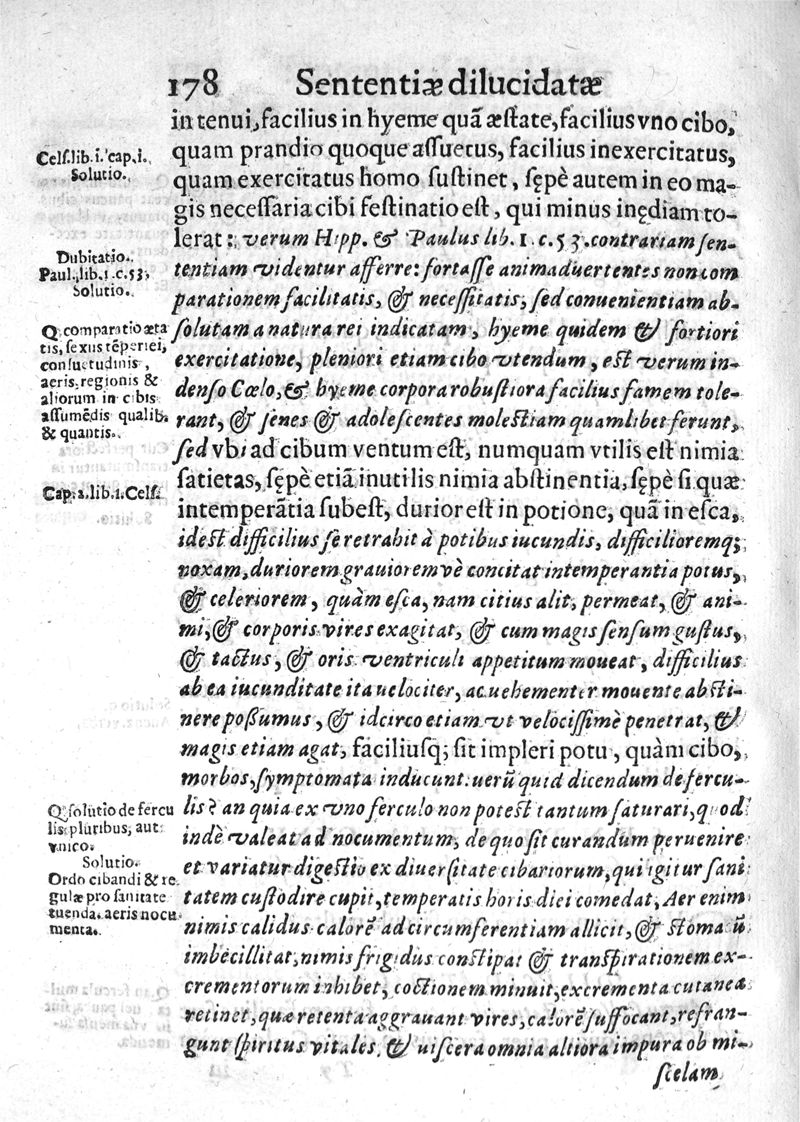 178 Sententiæ dilucidatæ
in tenui, facilius in hyeme quã æſtate, facilius vno cibo,
quam prandio quoque aſſuetus, facilius inexercitatus,
quam exercitatus homo ſuſtinet, ſępè autem in eo ma-
gis neceſſaria cibi feſtinatio eſt, qui minus inędiam to-
lerat: verum Hipp. & Paulus lib. 1. c. 53. contrariam ſen-
tentiam videntur afferre: fortaſſe animaduertentes non com
parationem facilitatis, & neceſſitatis, ſed conuenientiam ab-
ſolutam a natura rei indicatam, hyeme quidem & fortiori
exercitatione, pleniori etiam cibo vtendum, eſt verum in-
denſo Cœlo, & hyeme corpora robuſtiora facilius famem tole-
rant, & ſenes & adoleſcentes moleſtiam quamlibet ferunt,
ſed vbi ad cibum ventum eſt, numquam vtilis eſt nimia
ſatietas, ſępè etiã inutilis nimia abſtinentia, ſępè ſi quæ
intemperãtia ſubeſt, durior eſt in potione, quã in eſca,
ideſt difficilius ſe retrahit à potibus iucundis, difficilioremq;
noxam, duriorem grauiorem vè concitat intemperantia potus,
& celeriorem, quàm eſca, nam citius alit, permeat, & ani-
mi, & corporis vires exagitat, & cum magis ſenſum guſtus,
& tactus, & oris ventriculi appetitum moueat, difficilius
ab ea iucunditate ita uelociter, ac uehementer mouente abſti-
nere poßumus, & idcirco etiam vt velociſſimè penetrat, &
magis etiam agat, faciliuſq; ſit impleri potu, quàm cibo,
morbos, ſymptomata inducunt. uerũ quid dicendum de fercu-
lis? an quia ex vno ferculo non poteſt tantum ſaturari, quod
indè valeat ad nocumentum, de quo ſit curandum peruenire
et variatur digeſtio ex diuerſitate cibariorum, qui igitur ſani
tatem cuſtodire cupit, temperatis horis diei comedat, Aer enim
nimis calidus calorẽ ad circumferentiam allicit, & ſtomaũ
imbecillitat, nimis frigidus conſtipat & tranſpirationem ex-
crementorum inhibet, coctionem minuit, excrementa cutanea
retinet, quæ retenta aggrauant vires, calorẽ ſuffocant, refran-
gunt ſpiritus vitales, & uiſcera omnia altiora impura ob mi-
ſcelam
Celſ. lib. i. cap. i.
Solutio.
Dubitatio.
Paul. lib. 1. c. 53,
Solutio.
Q. comparatio æta
tis, ſexus tẽperiei,
conſuetudinis,
aeris, regionis &
aliorum in cibis
aſſumẽdis qualib.
& quantis.
Cap. 2. lib. 1. Celſ.
Q. ſolutio de fercu
lis pluribus, aut
vnico.
Solutio.
Ordo cibandi & re
gulæ pro ſanitate
tuenda. aeris nocu
menta.